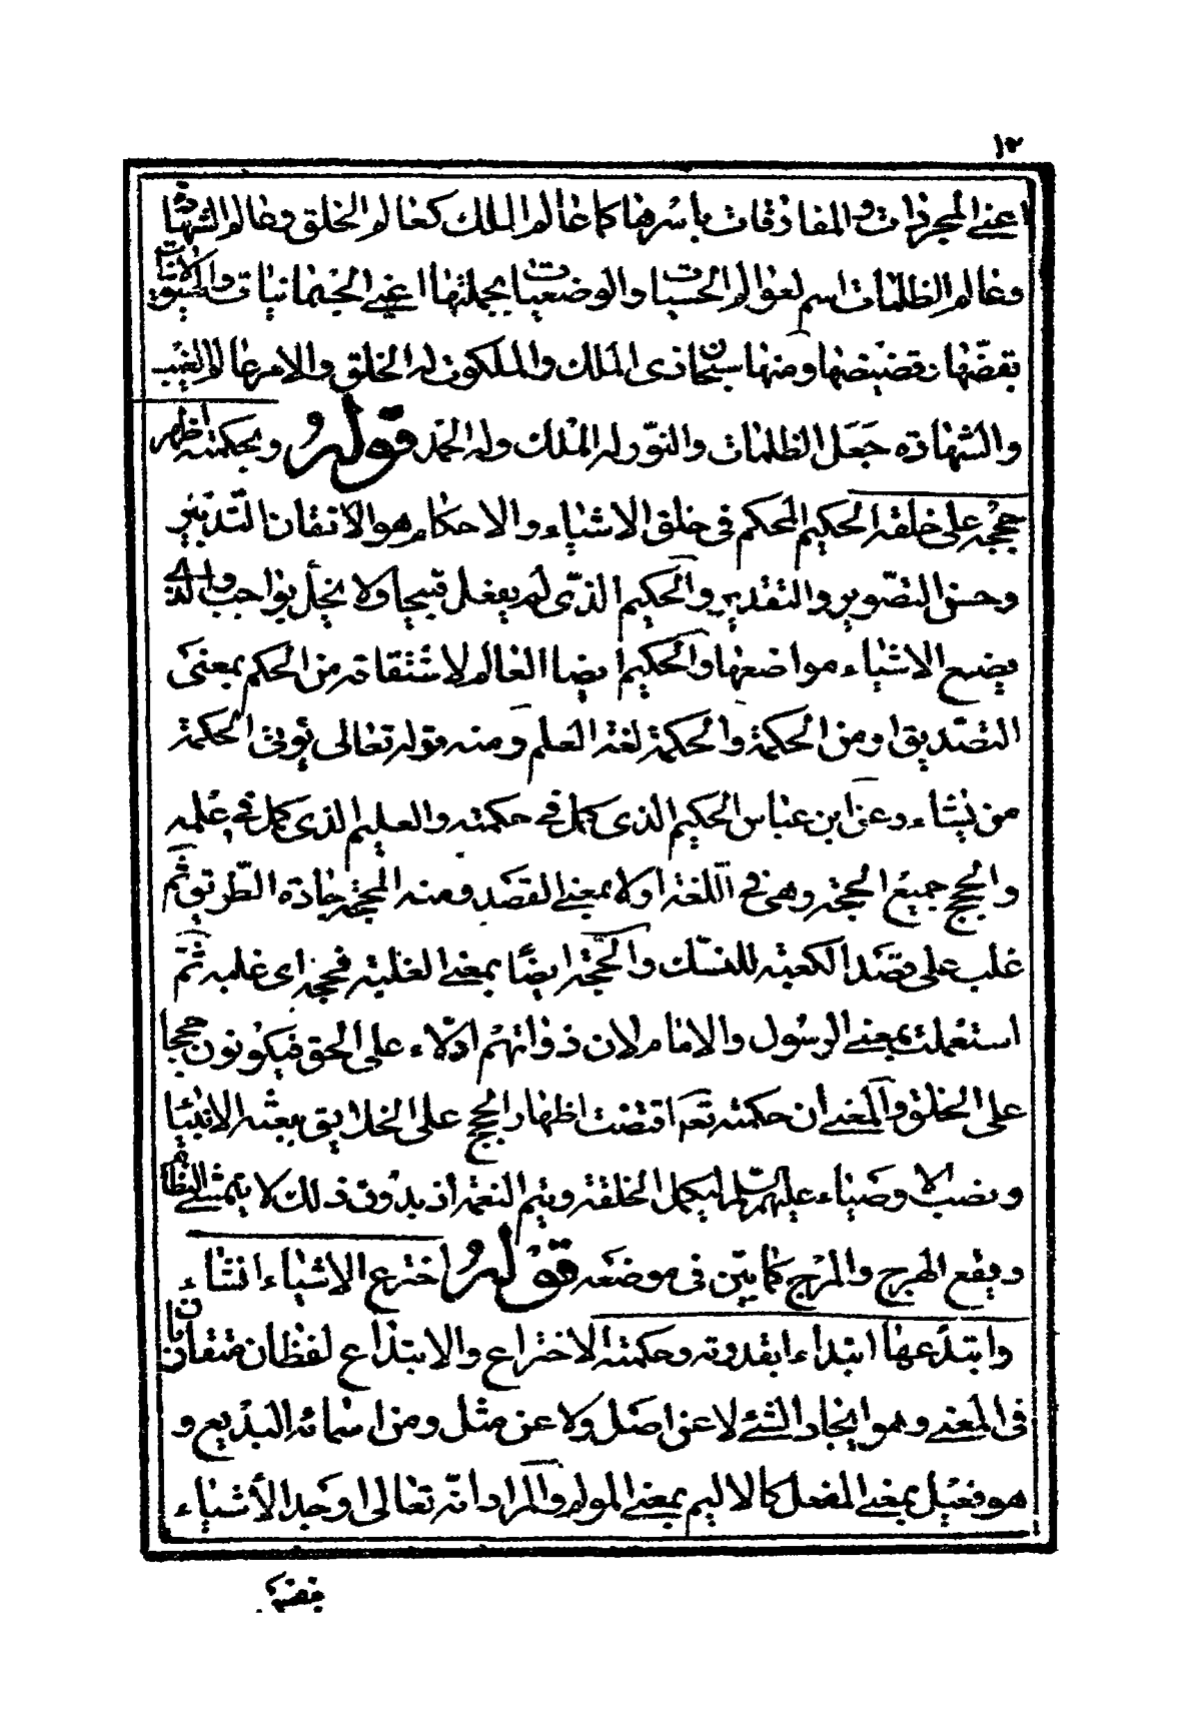 ١٢
اعنى المجردات والمفارقات باسرها كما عالم الملك كعالم الخلق وعالم الشهادة
وعالم الظلمات اسم لعوالم الحسيات والوضعيات بجملتها اعنى الجسمانيات
بقضّها وقضيضها ومنها سبحان ذى الملك والملكوت له الخلق والامر عالم الغيب
والشهادة جَعَل الظلمات والنّور له المُلك وله الحمد قوله وبحكمته اظهر
حججه على خلقه الحكيم المحكم فى خلق الاشياء والاحكام هو الاتقان التّدبير
وحسن التصّوير والتقدير والحكيم الذّى لم يفعل قبيحا ولا يخلّ بواجب والذى
يضع الاشياء مواضعها والحكيم ايضا العالم لاشتقاقه من الحكم بمعنى
التصّديق او من الحكمة والحكمة لغة العلم ومنه قوله تعالى يؤتى الحكمة
من يشاء وعن ابن عباس الحكيم الذى كمل فى حكمته والعليم الذى كمل فى علمه
والحجج جميع الحجة وهى فى اللغة اولا بمعنى القصد ومنه المحجّة جادة الطّريق ثم
غلب على قصد الكعبة للنسك والحجّة ايضًا بمعنى الغلبة فحجه اى غلبه ثمّ
استعملت بمعنى الرسُول والامام لان ذواتهم ادلّاء على الحق فيكونون حججا
على الخلق والمعنى ان حكمته تعم اقتضت اظهار الحجج على الخلايق ببعثه الانبياء
ونصب الاوصياء عليهم السلم ليكمل الخلقة ويتم النعمة اذ بدون ذلك لا يتمشى النظام
ويقع الهرج والمرج كما بيّن فى موضعه قوله اخترع الاشياء انشاء
وابتدعها ابتداء بقدرته وحكمته الاختراع والابتداع لفظان متقاربان
فى المعنى وهو ايجاد الشئ لا عن اصل ولا عن مثل ومن اسمائه البديع و
هو فعيل بمعنى المفعل كالاليم بمعنى المولم والمراد انّه تعالى اوجد الأشياء